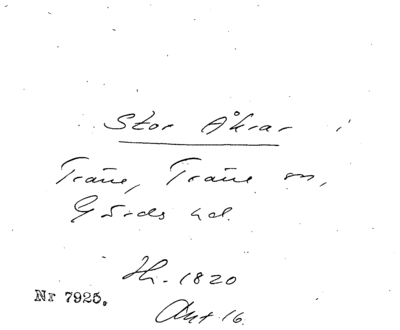 Stor Åkrar i
Trane, Trane sn,
Gärds hd.
Hs. 1820
Nr 7925.
Akt 16.